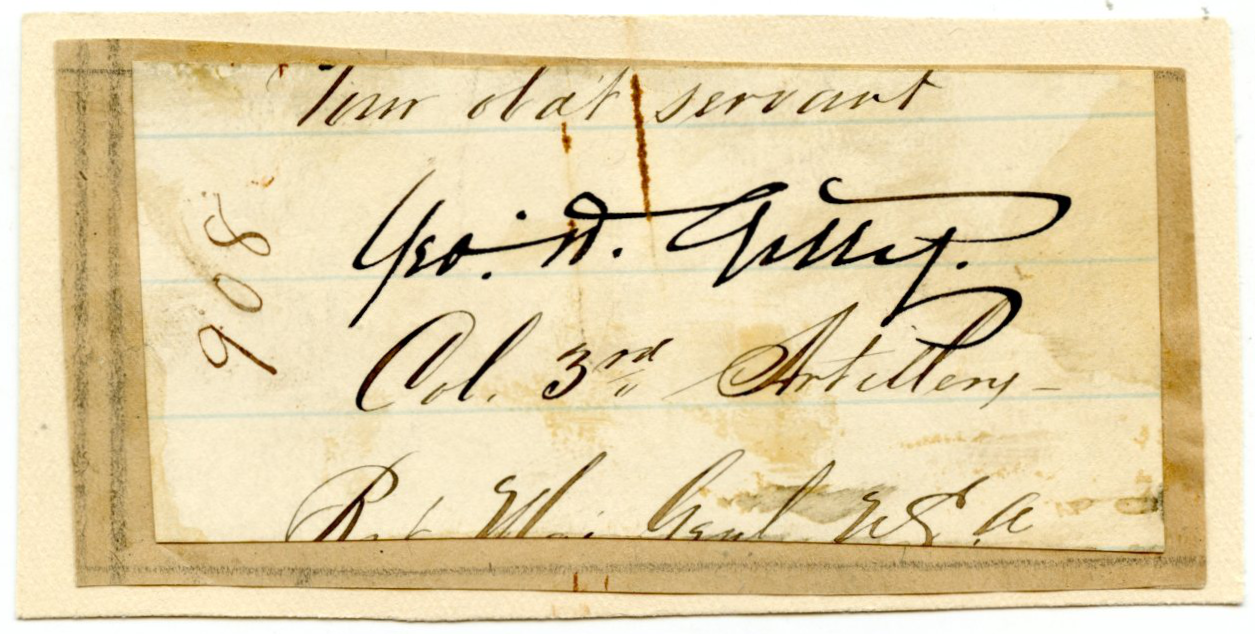 Your obdt servant
Geo. W. Getty.
Col. 3rd Artillery -
Bvt Maj Genl U.S.A
908